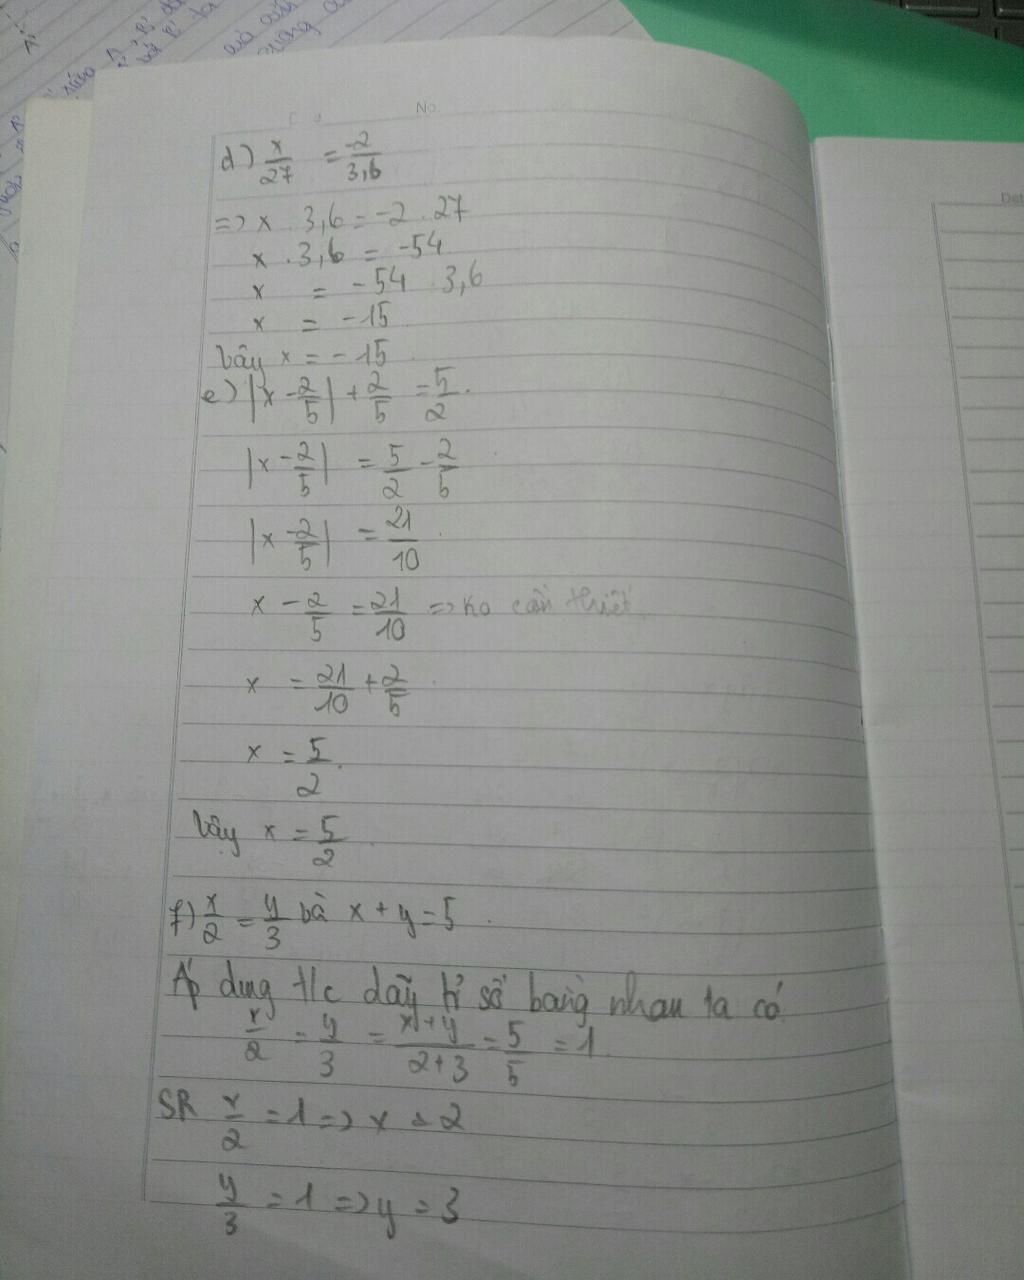 No
d) x/27 = -2/3,6
=> x . 3,6 = -2 . 27
x . 3,6 = -54
x = -54 3,6
x = -15
Vây x = -15
e) |x - 2/5| + 2/5 = 5/2.
|x - 2/5| = 5/2 - 2/5
|x - 2/5| = 21/10
x - 2/5 = 21/10 => ko cần thiết
x = 21/10 + 2/5
x = 5/2
Vây x = 5/2
f) x/2 = y/3 và x + y = 5
Áp dung t/c dãy tỉ số bằng nhau ta có
x/2 = y/3 = x+y/2+3 = 5/5 = 1
SR x/2 = 1 => x = 2
y/3 = 1 => y = 3